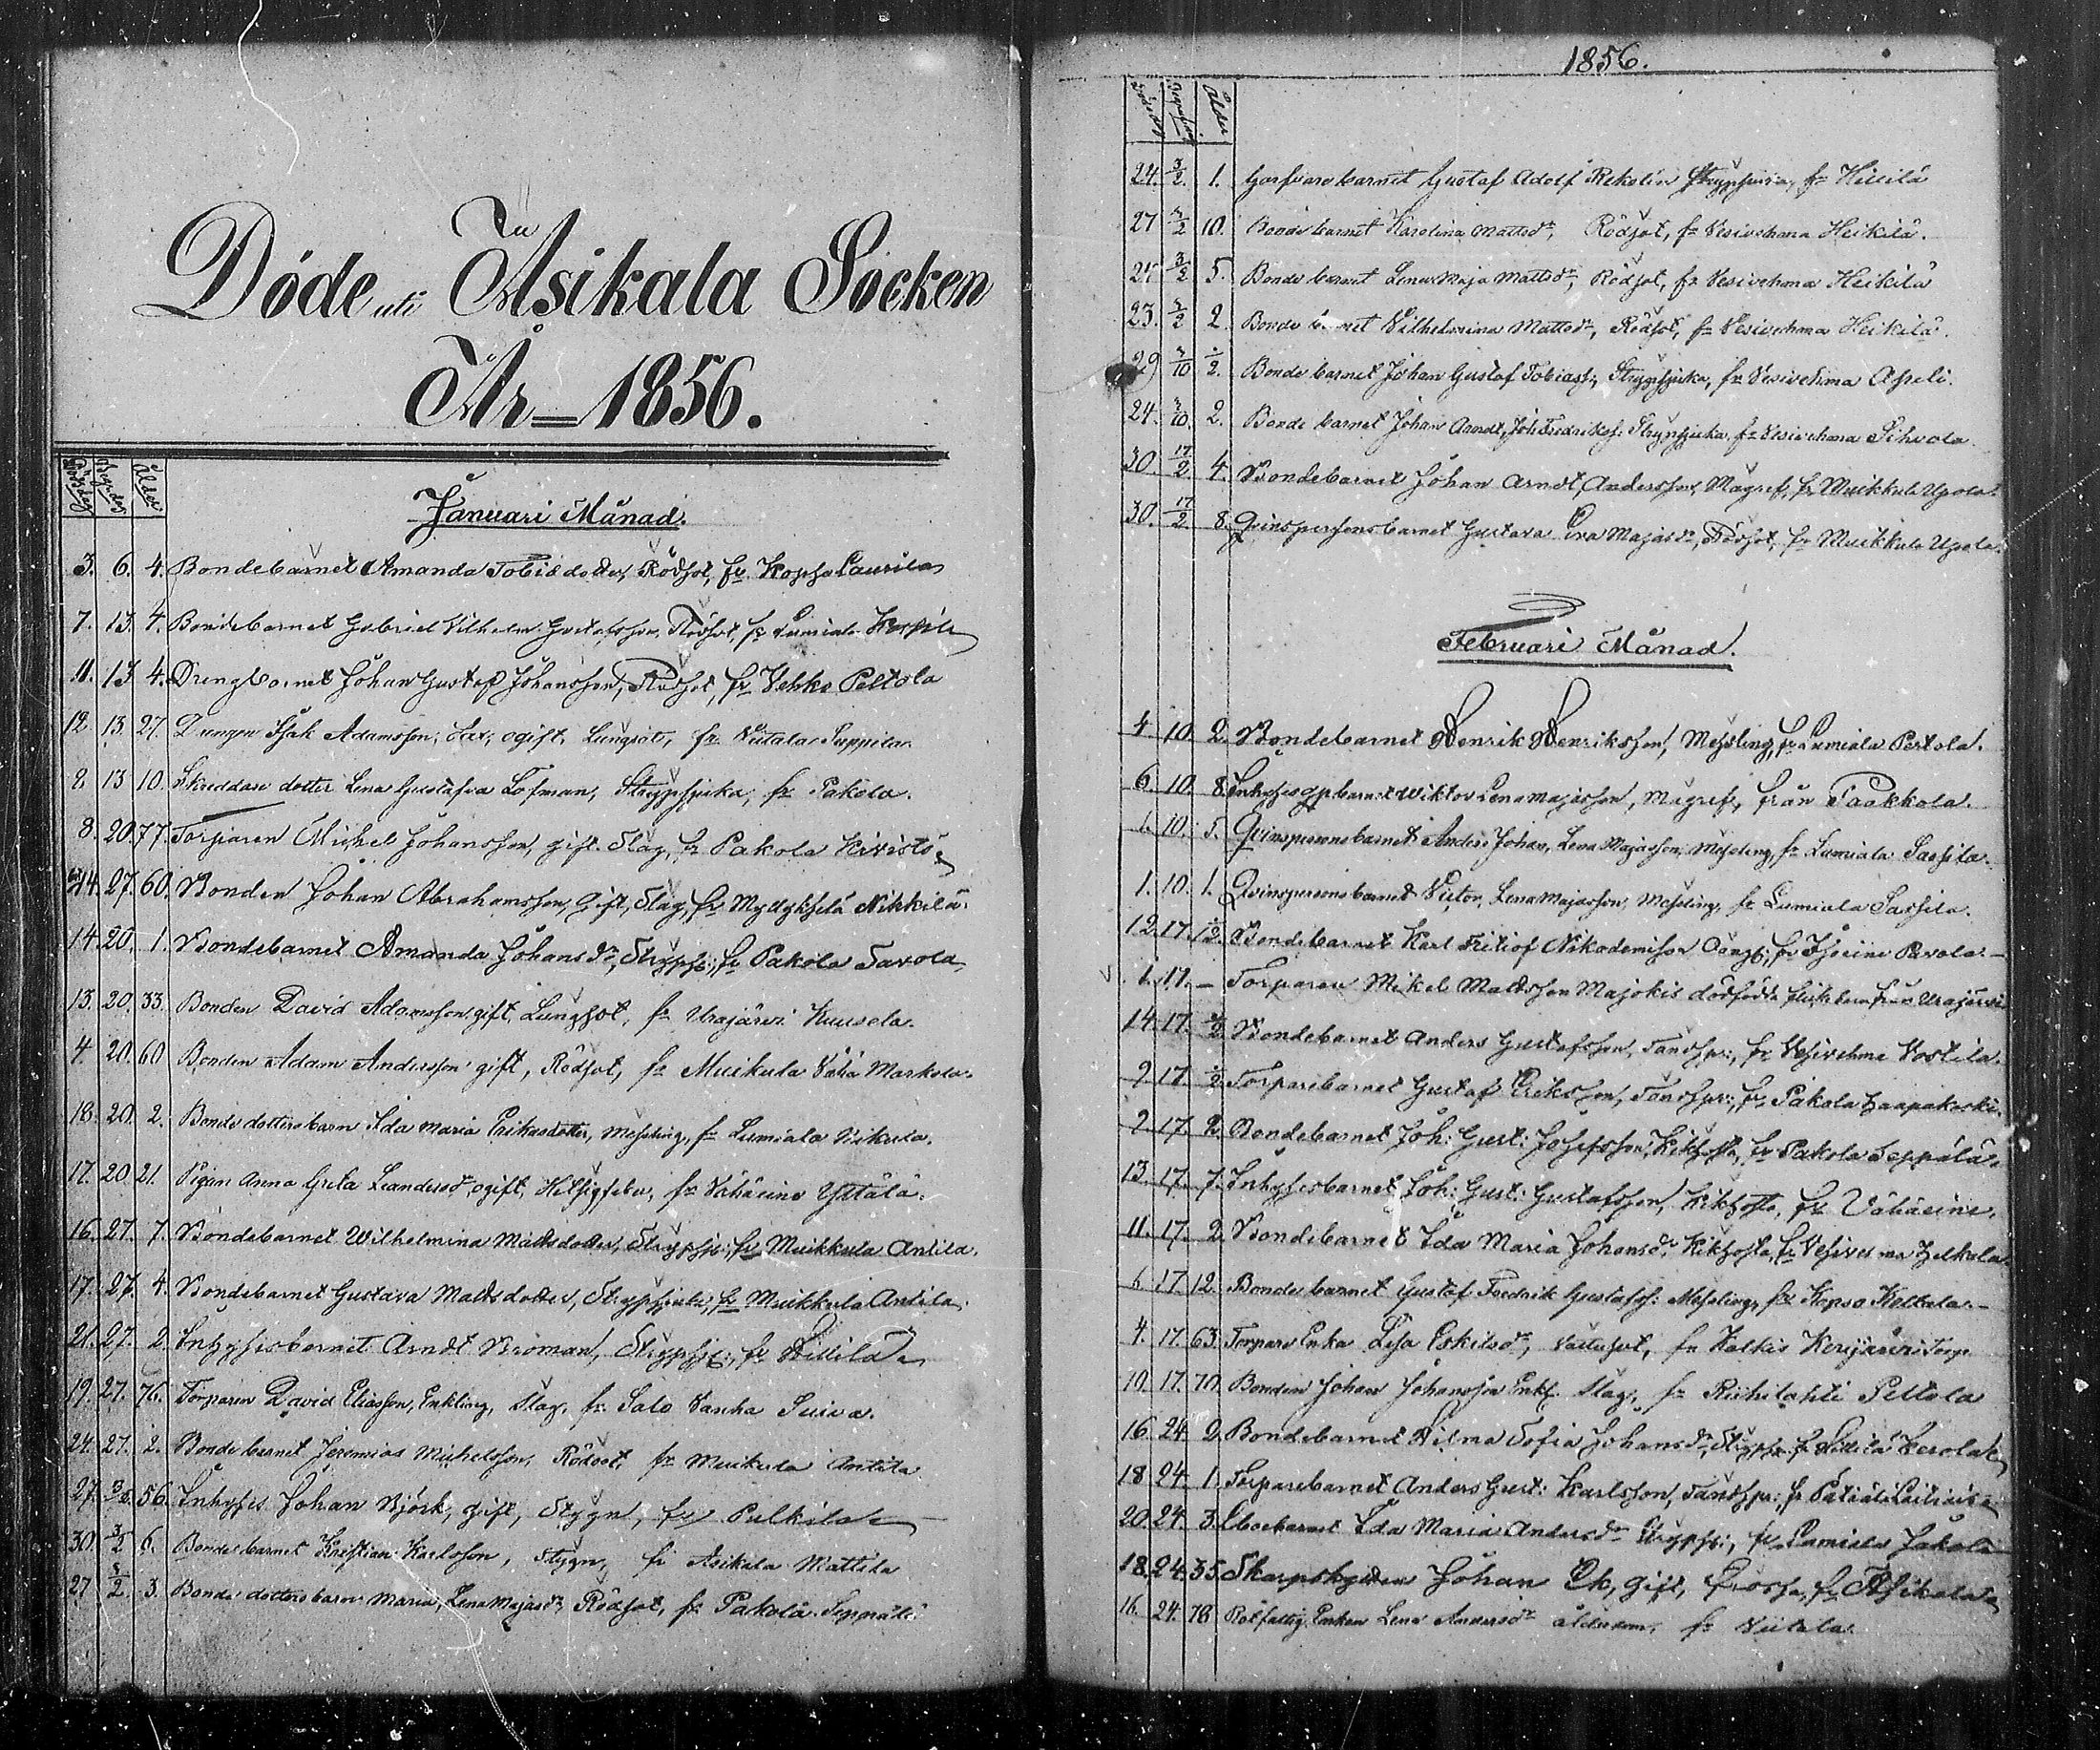 Döde uti Asikala Socken
År = 1856.
Dödsdag Begr.dag Ålder
Januari Månad.
3. 6. 4. Bondebarnet Amanda Tobiedotter, Rödsot, fr. Kopso Laurila
7. 13. 4. Bondebarnet Gabriel Vilhelm Gustafsson, Rödsot, fr Lumiala
11. 13. 4. Drengbarnet Johan Gustaf Johansson, Rödsot, fr. Vehko Peltola
12. 13. 27. Drengen Isak Adamsson, ogift, Lungsot, fr Viitala Seppila
2. 13. 10. Skreddare dotter Lena Gustafva Löfman, Strypsjuka, fr Pakola.
8. 20. 77. Torparen Michel Johansson, gift. Slag, fr Pakola Kivistö
14. 27. 60. Bonden Johan Abrahamsson, Gift, Slag, fr Myllykselä Nikkilä
14. 20. 1. Bondebarnet Amanda Johansdr, Strypsj:, fr Pakola Tavola
13. 20. 33. Bonden David Adamsson gift, Lungsot, fr Urajärvi Kuusela.
4. 20. 60 Bonden Adam Andersson gift, Rödsot, fr Muikula Vähä Markola.
18. 20. 2. Bonde dotters barn Ida Maria Eriksdotter, Messling, fr Lumiala
17. 20. 21. Pigan Anna Greta Leandersdr ogift, fr Vähäeino Yttälä.
16. 27. 7. Bondebarnet Wilhelmina Mattsdotter, Strypsj:, fr Muikkula Antila.
17. 27. 4. Bondebarnet Gustava Mattsdotter, Strypsjuka, fr Muikkula Antila.
21. 27. 2. Inhysesbarnet Arndt Broman, Strypsj:, fr Hillilä
19. 27. 76. Torparen David Eliasson, Enkling, Slag. fr. Salo Vanha
24. 27. 2. Bonde barnet Jeremias Michelsson, Rödsot, fr Muikula Antila
27. 56. Inhyses Johan Björk, gift, Stygn, fr Pulkila
30. 3/2 6. Bondebarnet Kristian Karlsson, Stygn, fr Asikala Mattila
27 3/2. 3. Bonde dotters barn Maria, Lena Majasdr, Rödsot, fr Pakola Seppälä
1856.
Dödsdag Begrafning Ålder
24. 3/2. 1. Garfvare barnet Gustaf Adolf Rekolin Strypsjuka, fr Hillilä
27 3/2 10. Bonde barnet Karolina Mattsdr, Rödsot, fr Vesivehma Heikilä.
25. 3/2 5. Bonde barnet Lena Maja Mattsdr, Rödsot, fr Vesivehma Heikilä
23. 3/2 2. Bonde barnet Vilhelmina Mattsdr, Rödsot, fr Vesivehma Heikilä.
29 3/10 1/2. Bonde barnet Johan Gustaf Tobiass:, Strypsjuka, fr Vesivehma Aspeli.
24. 3/10. 2. Bonde barnet Johan Arndt, Joh: Fredrikss: Strypsjuka, fr Vesivehma Sihvola
30. 17/2 4. Bondebarnet Johan Arndt, Andersson, Magref, fr Muikkula Upola.
30. 17/2 8. Qvinspersonsbarnet Gustava Eva Majasdr, Rödsot, fr Muikkula Upola.
Februari Månad.
4. 10. 2. Bondebarnet Henrik Henriksson, Messling, fr Lumiala Pertola.
6. 10. 8. barnet Wiktor Lena Majasson, Magref, från Paakkola.
1. 10. 5. Qvinspersonsbarnet Anders Johan, Lena Majasson, Messling, fr Lumiala Sassila.
1. 10. 1. Qvinspersons barnet Victor, Lena Majasson, Messling, fr Lumiala Sassila.
12. 17. 1/2. Bondebarnet Karl Fritiof Nikodemsson fr Isoeino Pavola.
1. 17. – Torparen Mikel Mattsson Majokis dödfödda från Urajärvi
14. 17. 1/2 Bondebarnet Anders Gustafsson, Tandspr:, fr Vesivehma Vostila.
9. 17. 1/2 Torparebarnet Gustaf Eriksson, Tandspr:, fr Pakola Haapakoski.
2. 17. 2. Bondebarnet Joh: Gust: Josefsson, Kikhosta, fr Pakola Seppälä.
13. 17. 7. Inhysesbarnet Joh: Gust: Gustafsson, Kikhosta, fr Vähäeino.
11. 17. 2. Bondebarnet Ida Maria Johansdr, Kikhosta, fr Vesivehma
6. 17. 12. Bonde barnet Gustaf Fredrik Gustafss: Messling, fr Kopso Keltala.
4. 17. 63. Torpare Enka Lisa Eskilsdr, Vattusot, fr Kalkis Kerijärvi Torp
10. 17. 70. Bonden Johan Johansson Enkl. Slag, fr Riihilahti Peltola
16. 24. 2. Bondebarnet Hilma Sofia Johansdr, Strypsj: fr Hillilä Lerola
18. 24. 1. Torparebarnet Anders Gust: Karlsson, Tandspr: fr
20. 24. 3. barnet Ida Maria Andersdr Strypsj:, fr Lumiala Jakola
18. 24. 35 Skarpskytten Johan Ek, Gift, Frossa, fr Asikala
16. 24. 78 Rotfattig Enkan Lena Andersdr ålderdom, fr Viitala.